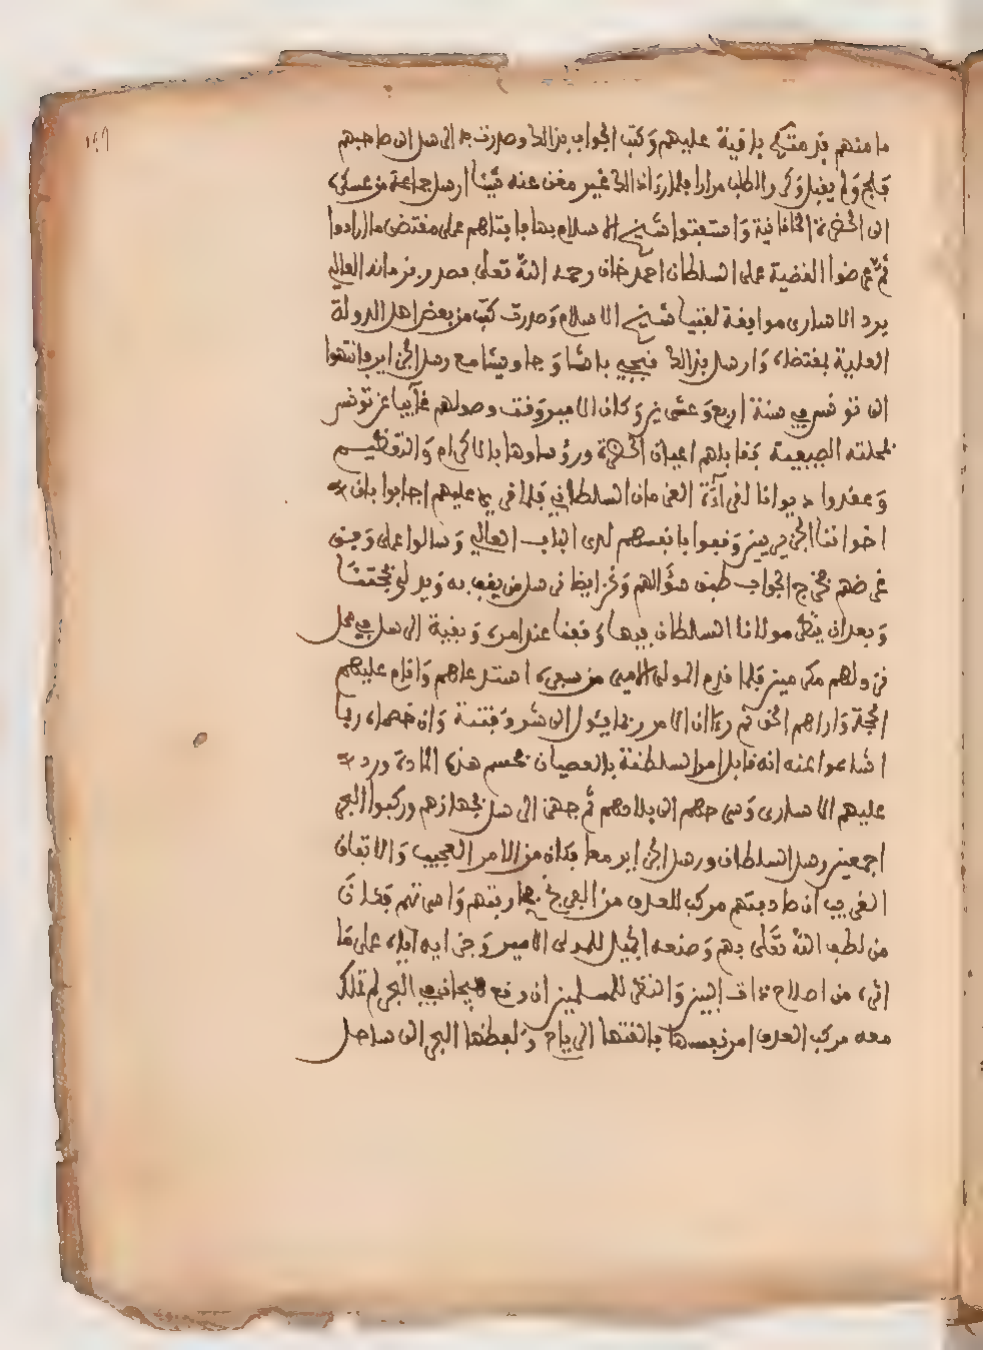 ١٤٩
ما منهم قد متكم باقية عليهم وكتب الجواب بذالك وصدرت به الرسل الى صاحبهم
فلج ولم يقبل وكرر الطلب مرارا فلما رءا ذالك غير مغن عنه شيئا ارسل جماعة من عسكره
الى الحضرة الخاقانية واستفتوا شيخ الاسلام بها فافتاهم على مقتضى ما ارادوا
ثم عرضوا القضية على السلطان احمد خان رحمه الله تعلى فصدر فرمانه العالي
برد الاسارى موافقة لفتيا شيخ الاسلام وصدرت كتب من بعض اهل الدولة
العلية بمقتضاه وارسل بذالك قبجي باشا وجاويشا مع رسل الجزاير فانتهوا
الى تونس في سنة اربع وعشرين وكان الامير وقت وصولهم غآيبا عن تونس
بمحلته الصيفية فقابلهم اعيان الحضرة ورؤساوها بالاكرام والتعظيم
وعقدوا ديوانا لقرآءة الفرمان السلطاني فلما قرئ عليهم اجابوا بان
اخواننا الجزيريين وقفوا بانفسهم لدى الباب العالي وسالوا على وفق
غرضهم فخرج الجواب طبق سؤالهم ونحن ايضا نرسل من يقف به ويدلي بحجتنا
وبعد ان ينظر مولانا السلطان فيها وقفنا عند امره وبقية الرسل في محل
نزولهم مكرمين فلما قدم المولى الامير من سفره استدعاهم واقام عليهم
الحجة واراهم الحق ثم رءا ان الامر ربما يئول الى شر وفتنة وان خصماه ربما
اشاعوا عنه انه قابل امر السلطنة بالعصيان فحسم هذه المادة ورد
عليهم الاسارى وسرحهم الى بلادهم ثم جهز الرسل بجهازهم وركبوا البحر
اجمعين رسل السلطان ورسل الجزاير معا فكان من الامر العجيب والاتفاق
الغريب ان صادفتهم مركب للعدو من البحر محاربتهم واسرتهم فكان
من لطف الله تعلى بهم وصنعه الجميل للمولى الامير وجزايه اياه على ما
اثره من اصلاح ذات البين والنظر للمسلمين ان وقع هيجان في البحر لم تملك
معه مركب العدو امر نفسها فالقتها الرياح ولفظها البحر الى ساحل